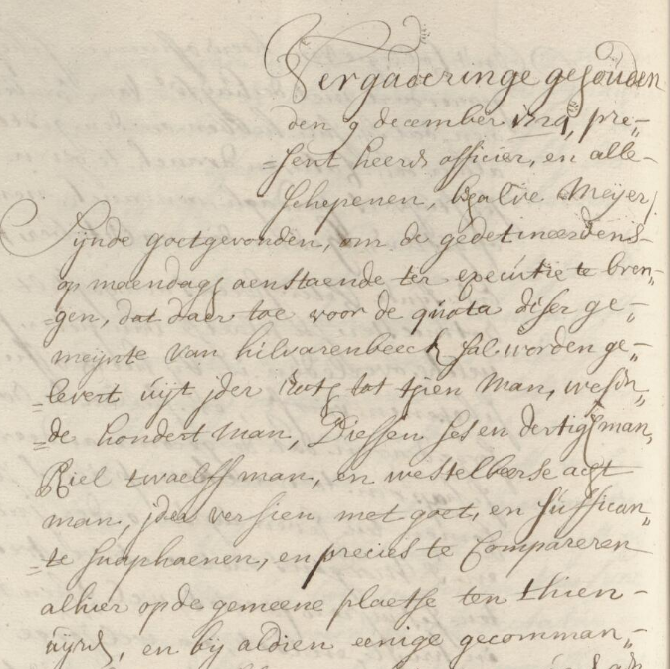 Vergaderinge gehouden
den 9 december 1724, pre„
„sent heer officier, en alle„
schepenen, Salve Meijer
Sijnde goetgevonden, om de gedetineerdens
op maendagh aenstaende ter executie te bren„
„gen, dat daer toe voor de quota diser ge„
meijnte van hilvarenbeeck sal worden ge„
„levert uijt jder rot tot thien man, wesen„
„de hondert man, Diessen ses en dertigh man,
Riel twaelff man, en westelbeerse acht
man, jder versien met goet, en suffican„
„te snaphaenen, en precies te Compareren
alhier op de gemeene plaetse ten thien
uijren, en bij aldien eenige gecomman„